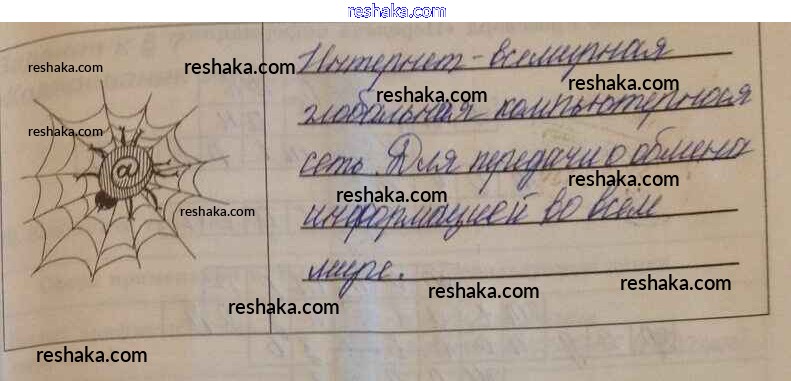 reshaka.com
Интернет - всемирная
reshaka.com
reshaka.com
reshaka.com
глобальная компьютерная
reshaka.com
reshaka.com
сеть. Для передачи обмена
@
reshaka.com
reshaka.com
reshaka.com
информацией во всем
мире.
reshaka.com
reshaka.com
reshaka.com
reshaka.com